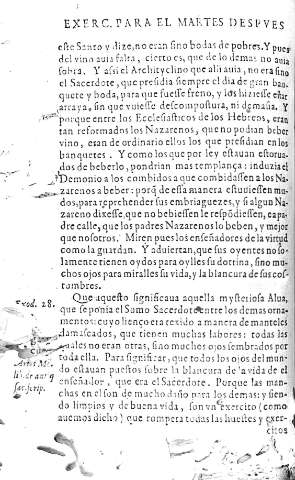 EXERC. PARA EL MARTES DESPVES
este Santo y dize, no eran sino bodas de pobres. Y pues
del vino auia falta, cierto es, que de lo demas no auia
sobra. Y assi el Archityclino que alli auia, no era sino
el Sacerdote, que presidia siempre el dia de gran ban-
quete y boda, para que fuesse freno, y los hiziesse estar
a raya, sin que vuiesse descompostura, ni demasia. Y
porque entre los Ecclesiasticos de los Hebreos, eran
tan reformados los Nazarenos, que no podian beber
vino, eran de ordinario ellos los que presidian en los
banquetes. Y como los que por ley estauan estorua-
dos de beberlo, pondrian mas templança: induzia el
Demonio a los combidos a que combidassen a los Na-
zarenos a beber: porq̃ de essa manera estuuiessen mu-
dos, para reprehender sus embriaguezes, y si algun Na-
zareno dixesse, que no bebiessen le respõdiessen, ea pa-
dre calle, que los padres Nazarenos lo beben, y mejor
que nosotros. Miren pues los enseñadores de la virtud
como la guardan. Y aduiertan, que sus oyentes no so-
lamente tienen oydos para oylles su dotrina, sino mu-
chos ojos para miralles su vida, y la blancura de sus cos-
tumbres.
Exod. 28.
Que aquesto significaua aquella mysteriosa Alua,
que se ponia el Sumo Sacerdote entre los demas orna-
mentos: cuyo lienço era texido a manera de manteles
damascados, que tienen muchas labores: todas las
quales no eran otras, sino muchos ojos sembrados por
toda ella. Para significar, que todos los ojos del mun-
do estauan puestos sobre la blancura de la vida de el
enseñador, que era el Sacerdote. Porque las man-
chas en el son de mucho daño para los demas: y sien-
do limpios y de buena vida, son vn exercito (como
auemos dicho) que rompera todas las huestes y exer-
citos